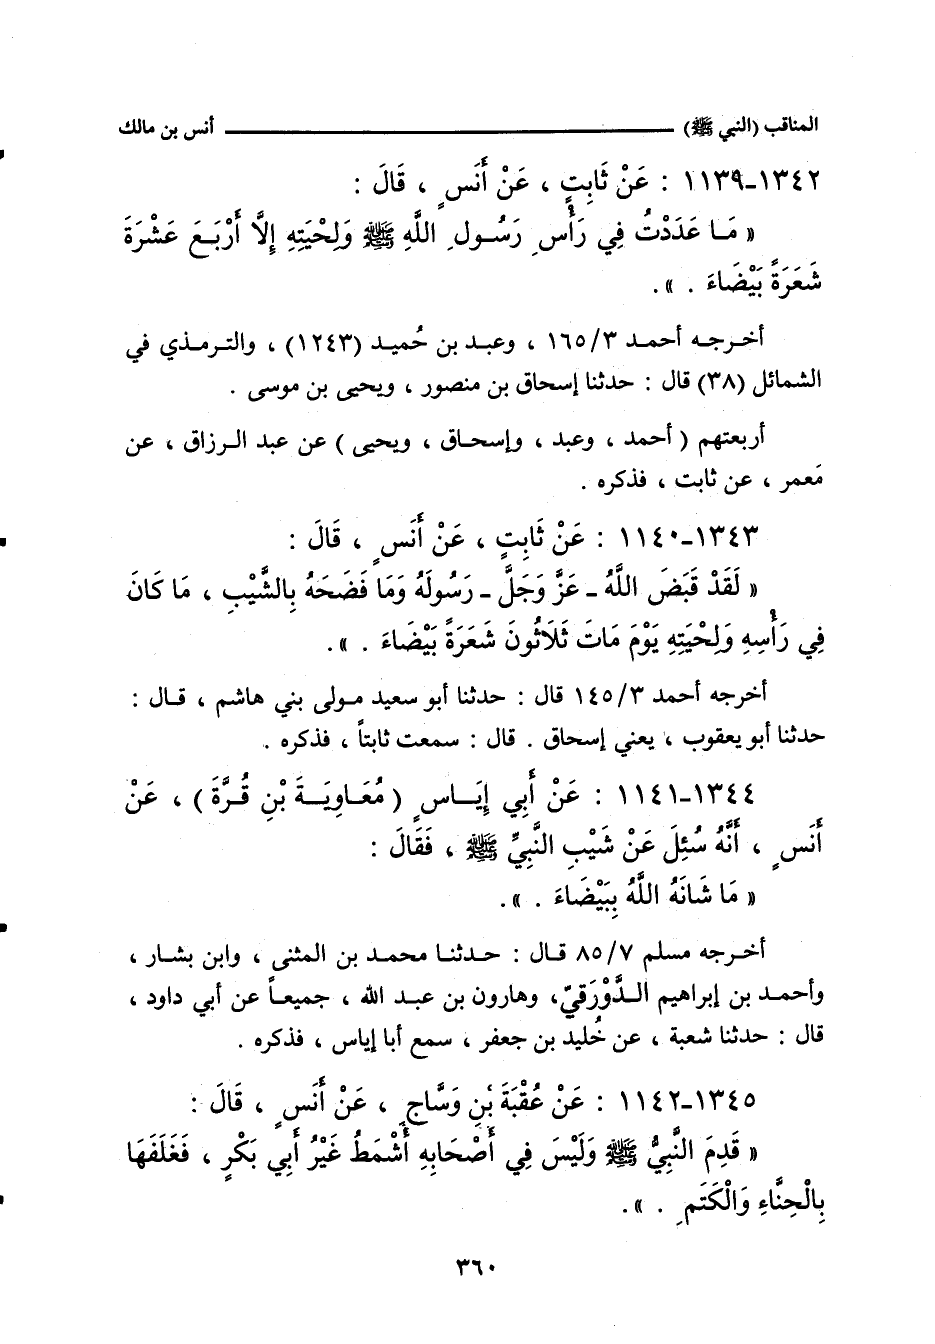 المناقب (النبي ﷺ) ـــــــــــــــــ أنس بن مالك
١٣٤٢-١١٣٩ : عَنْ ثَابِتٍ ، عَنْ أَنَسٍ ، قَالَ :
« مَـا عَدَدْتُ فِي رَأْسِ رَسُـولِ اللَّهِ ﷺ وَلِحْيَتِهِ إِلَّا أَرْبَـعَ عَشْرَةَ
شَعَرَةً بَيْضَاءَ . ».
أخـرجـه أحمـد ١٦٥/٣ ، وعبـد بن حُميـد (١٢٤٣) ، والتـرمـذي في
الشمائل (٣٨) قال : حدثنا إسحاق بن منصور ، ويحيى بن موسى .
أربعتهم ( أحمد ، وعبد ، وإسحـاق ، ويحيى ) عن عبد الـرزاق ، عن
مَعمر ، عن ثابت ، فذكره .
١٣٤٣-١١٤٠ : عَنْ ثَابِتٍ ، عَنْ أَنَسٍ ، قَالَ :
« لَقَدْ قَبَضَ اللَّهُ ـ عَزَّ وَجَلَّ ـ رَسُولَهُ وَمَا فَضَحَهُ بِالشَّيْبِ ، مَا كَانَ
فِي رَأْسِهِ وَلِحْيَتِهِ يَوْمَ مَاتَ ثَلَاثُونَ شَعَرَةً بَيْضَاءَ . ».
أخرجه أحمد ١٤٥/٣ قال : حدثنا أبو سعيد مـولى بني هاشم ، قـال :
حدثنا أبو يعقوب ، يعني إسحاق . قال : سمعت ثابتاً ، فذكره .
١٣٤٤-١١٤١ : عَنْ أَبِي إِيَـاسٍ ( مُعَـاوِيَـةَ بْنِ قُـرَّةَ ) ، عَنْ
أَنَسٍ ، أَنَّهُ سُئِلَ عَنْ شَيْبِ النَّبِيِّ ﷺ ، فَقَالَ :
« مَا شَانَهُ اللَّهُ بِبَيْضَاءَ . ».
أخـرجه مسلم ٨٥/٧ قـال : حـدثنـا محمـد بن المثنى ، وابن بشـار ،
وأحمـد بن إبراهيم الـدَّوْرَقيّ، وهارون بن عبـد الله ، جميعـاً عن أبي داود ،
قال : حدثنا شعبة ، عن خُليد بن جعفر ، سمع أبا إياس ، فذكره .
١٣٤٥-١١٤٢ : عَنْ عُقْبَةَ بْنِ وَسَّاجٍ ، عَنْ أَنَسٍ ، قَالَ :
« قَدِمَ النَّبِيُّ ﷺ وَلَيْسَ فِي أَصْحَابِهِ أَشْمَطُ غَيْرُ أَبِي بَكْرٍ ، فَغَلَفَهَا
بِالْحِنَّاءِ وَالْكَتَمِ . ».
٣٦٠